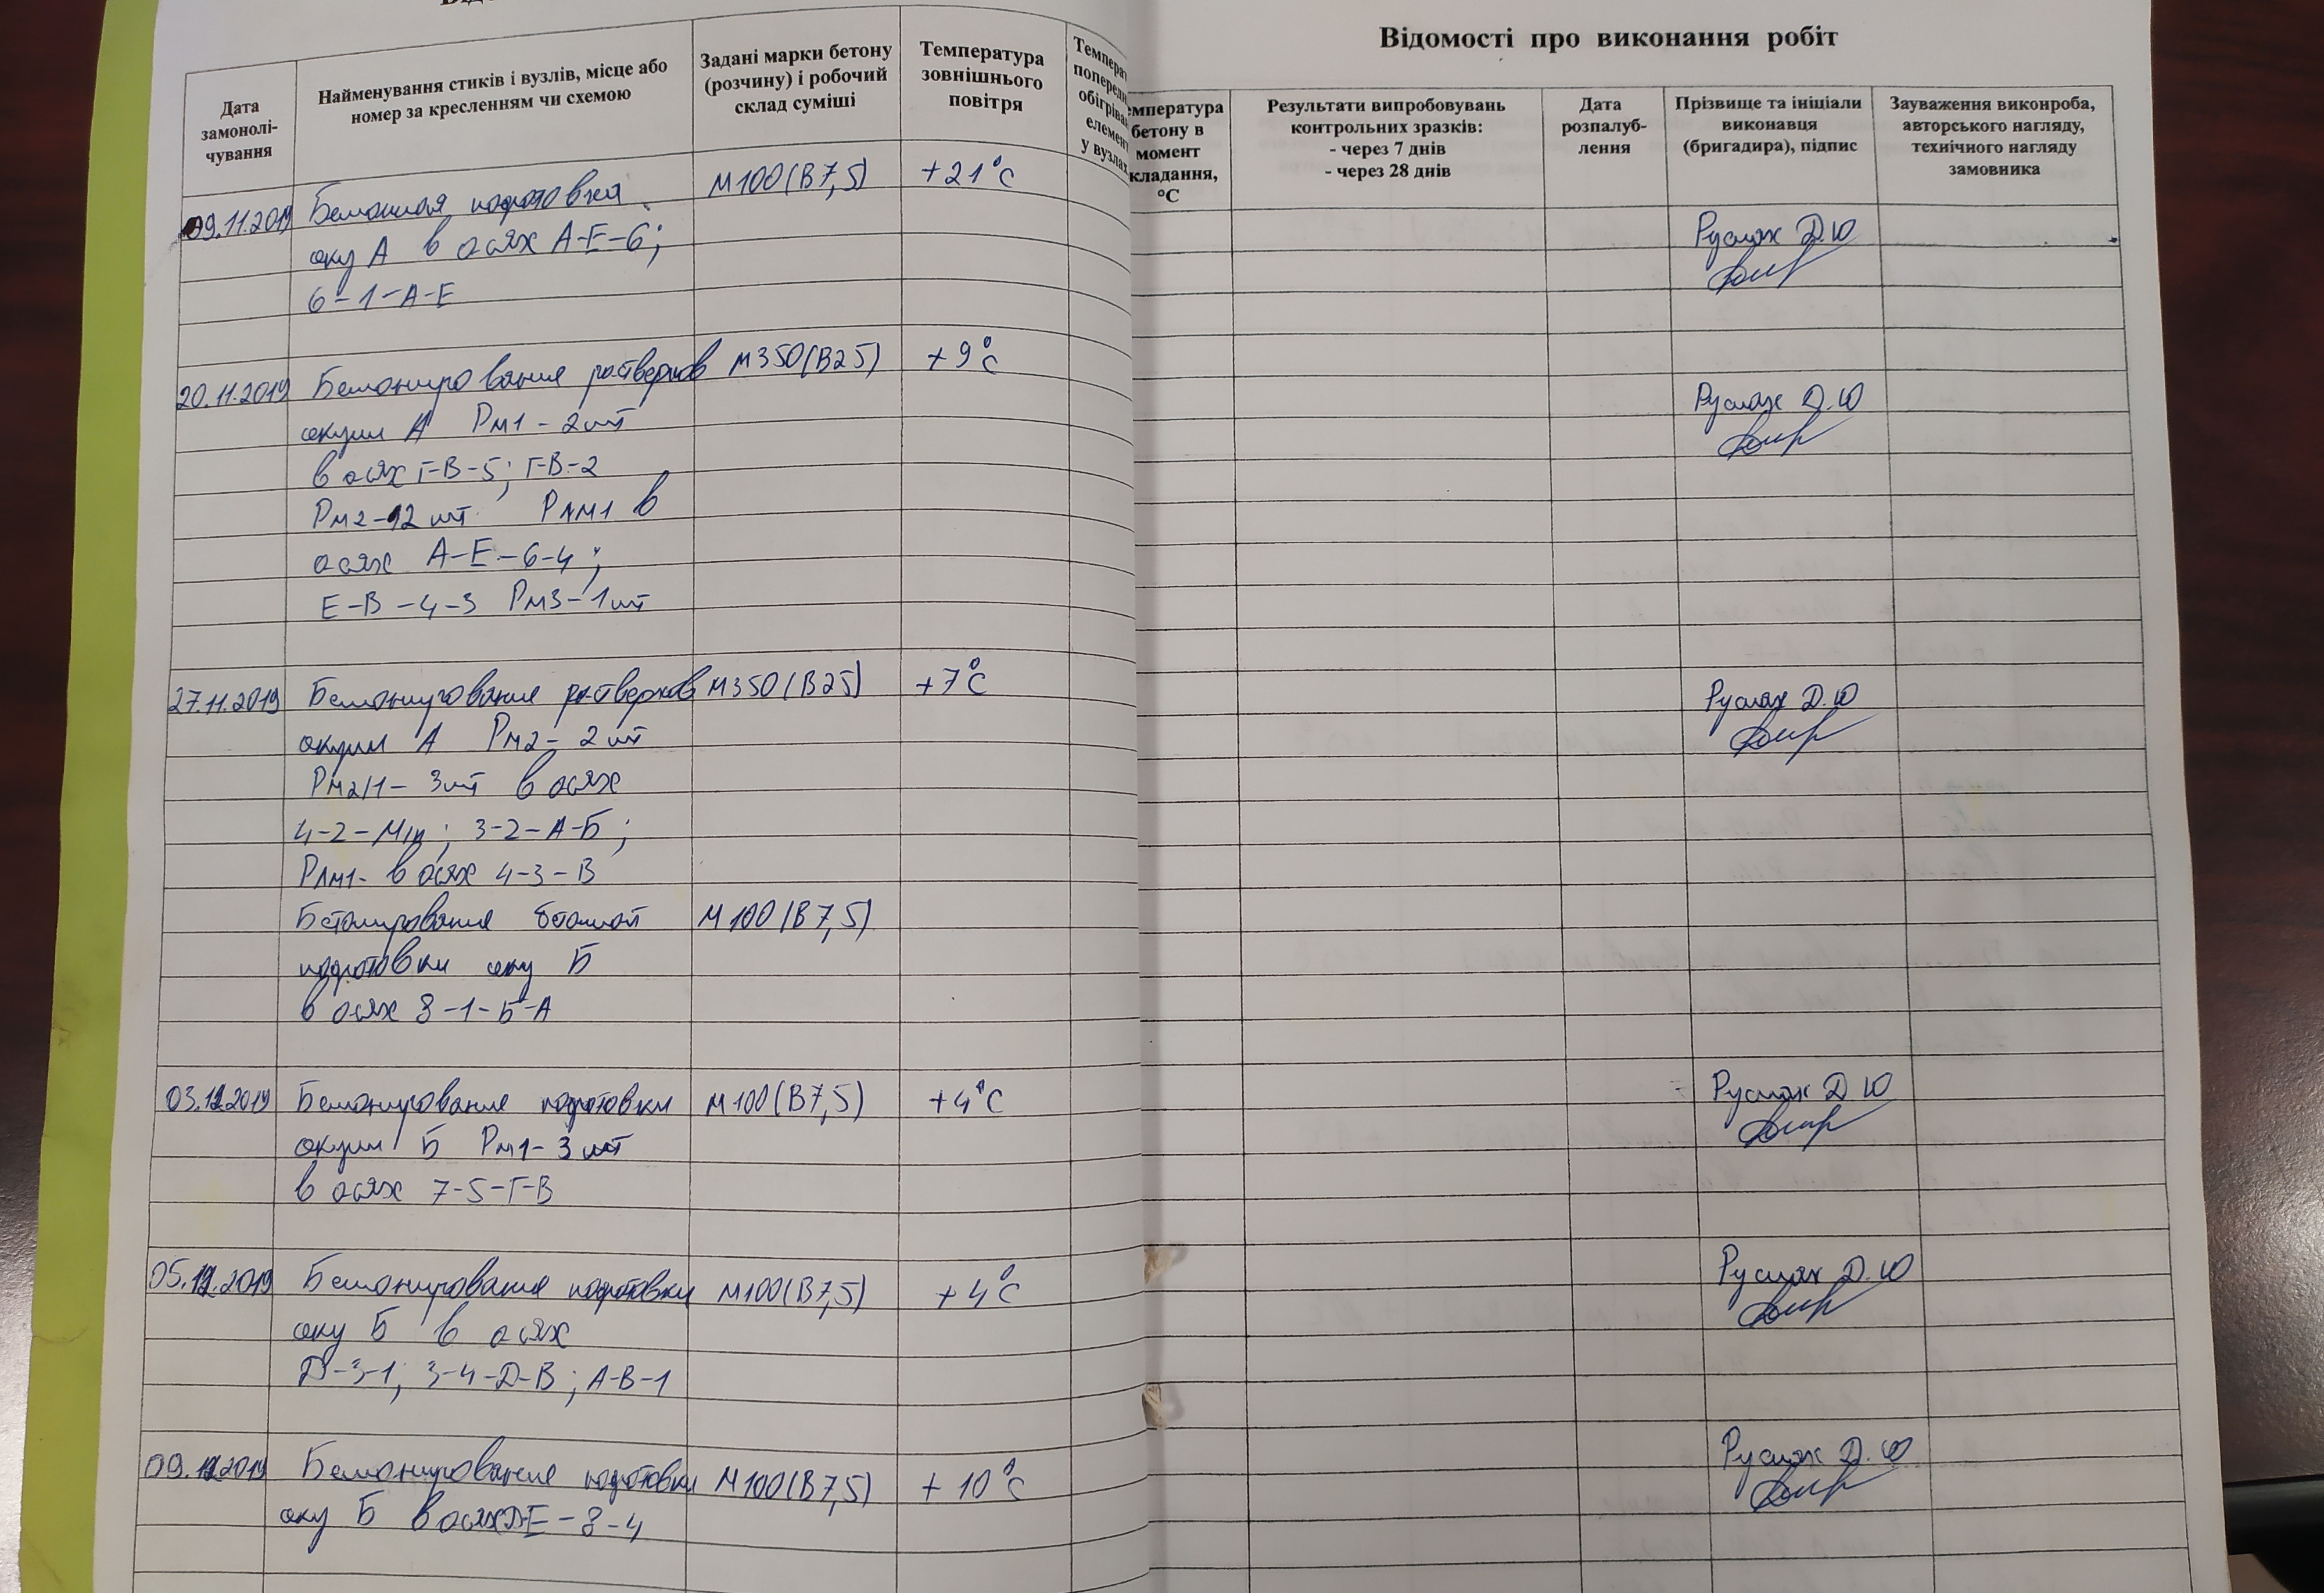 Відомості про виконання робіт
Дата
замонолі-
чування
Найменування стиків і вузлів, місце або
номер за кресленням чи схемою
Задані марки бетону
(розчину) і робочий
склад суміші
Температура
зовнішнього
повітря
Темпера
попере
обігріва
елемен
у вузлах
мпература
бетону в
момент
кладання,
°С
Результати випробовувань
контрольних зразків:
- через 7 днів
- через 28 днів
Дата
розпалуб-
лення
Прізвище та ініціали
виконавця
(бригадира), підпис
Зауваження виконроба,
авторського нагляду,
технічного нагляду
замовника
09.11.2019 Бетонная подготовка М100(В7,5) +21°С Русмах Д.Ю
секу А в осях А-Е-6;
6-1-А-Е
20.11.2019 Бетонирование роствергов М350(В25) +9°С Русмах Д.Ю
секции А Рм1-2шт
в осях Г-В-5; Г-В-2
Рм2-12шт Рлм1 в
осях А-Е-6-4;
Е-В-4-3 Рм3-1шт
27.11.2019 Бетонирование роствергов М350(В25) +7°С Русмах Д.Ю
секции А Рм2-2шт
Рм2/1-3шт в осях
4-2-М/п; 3-2-А-Б;
Рлм1- в осях 4-3-В
Бетонирование бетонной М100(В7,5)
подготовки секу Б
в осях 8-1-Б-А
03.12.2019 Бетонирование подготовки М100(В7,5) +4°С Русмах Д.Ю
секции Б Рм1-3шт
в осях 7-5-Г-В
05.12.2019 Бетонирование подготовки М100(В7,5) +4°С Русмах Д.Ю
секу Б в осях
Д-3-1; 3-4-Д-В; А-В-1
09.12.2019 Бетонирование подготовки М100(В7,5) +10°С Русмах Д.Ю
секу Б в осях Д-Е-8-4